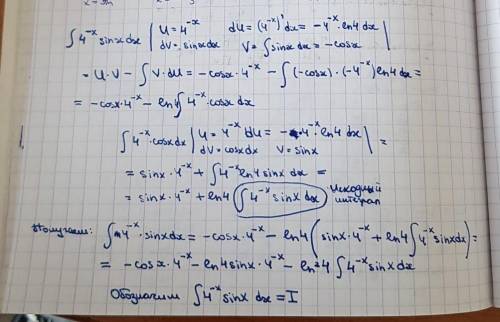 ∫ 4^{-x} sinx dx | u = 4^{-x}   du = (4^{-x})' dx = -4^{-x} · ln4 dx |
dv = sinx dx   v = ∫ sinx dx = -cosx
= u·v - ∫ v·du = -cosx · 4^{-x} - ∫ (-cosx) · (-4^{-x}) ln4 dx =
= -cosx · 4^{-x} - ln4 ∫ 4^{-x} · cosx dx
∫ 4^{-x} · cosx dx | u = 4^{-x}   du = -4^{-x} · ln4 dx | =
dv = cosx dx   v = sinx
= sinx · 4^{-x} + ∫ 4^{-x} ln4 sinx dx =
= sinx · 4^{-x} + ln4 ∫ 4^{-x} sinx dx   Исходный интеграл
Получаем: ∫ 4^{-x} · sinx dx = -cosx · 4^{-x} - ln4 (sinx · 4^{-x} + ln4 ∫ 4^{-x} sinx dx) =
= -cosx · 4^{-x} - ln4 sinx · 4^{-x} - ln²4 ∫ 4^{-x} sinx dx
Обозначим ∫ 4^{-x} sinx dx = I